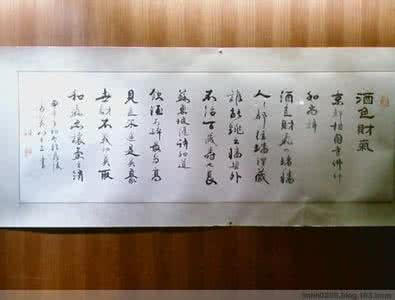 酒色財氣
京都相国寺佛印
和尚詩
酒色財氣四堵墙
人人都在墙裡藏
誰能跳出墙垛外
不活百歲壽也長
蘇東坡隨詩和道
飲酒不醉最为高
見色不迷是英豪
世財不義切莫取
和氣忍讓氣自消